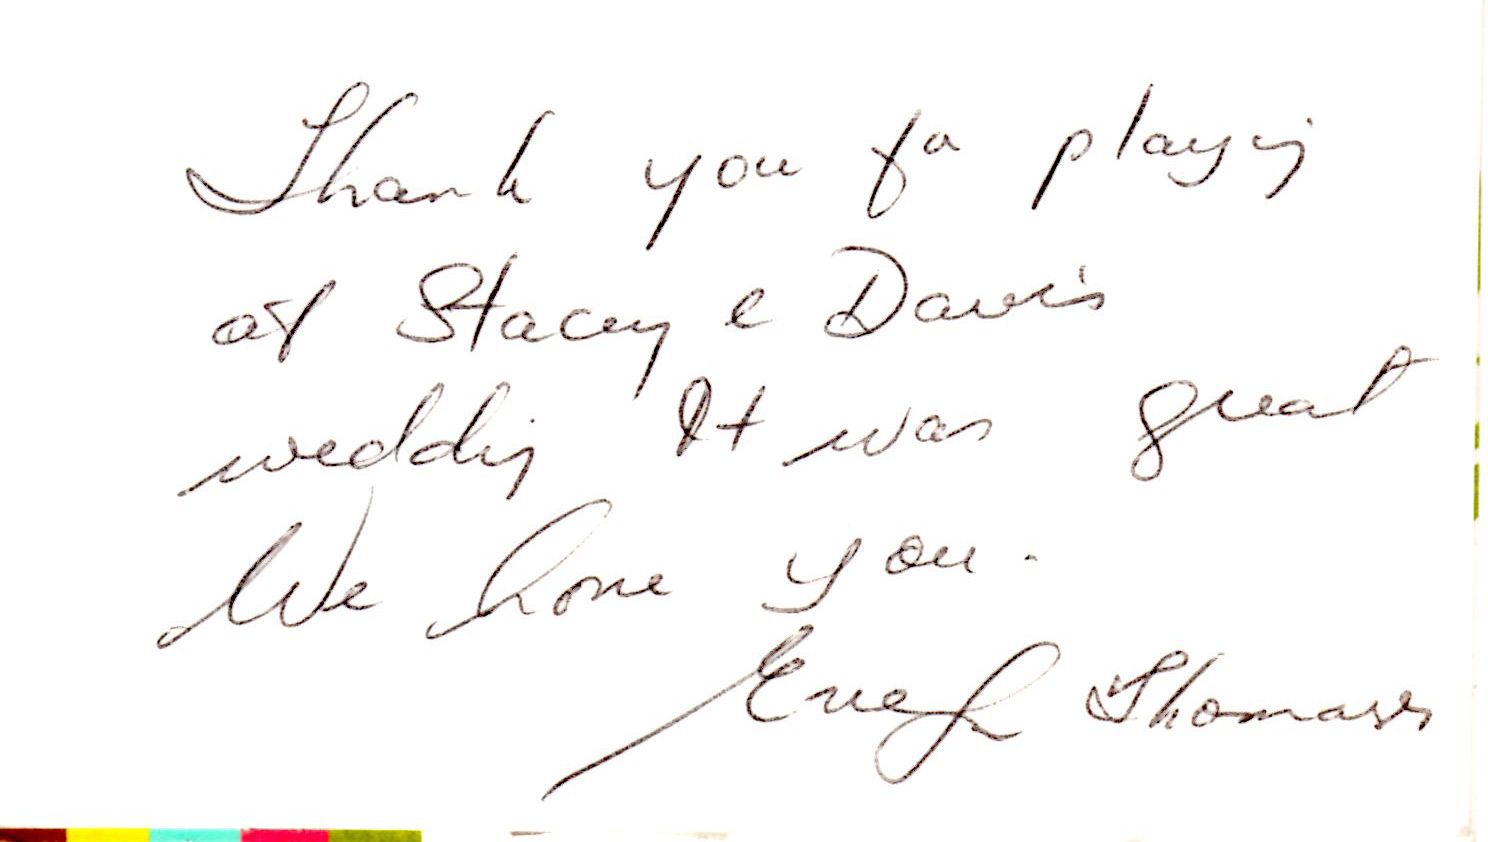 Thank you for playing
at Stacey & Davis
wedding It was great
We love you.
Thomas